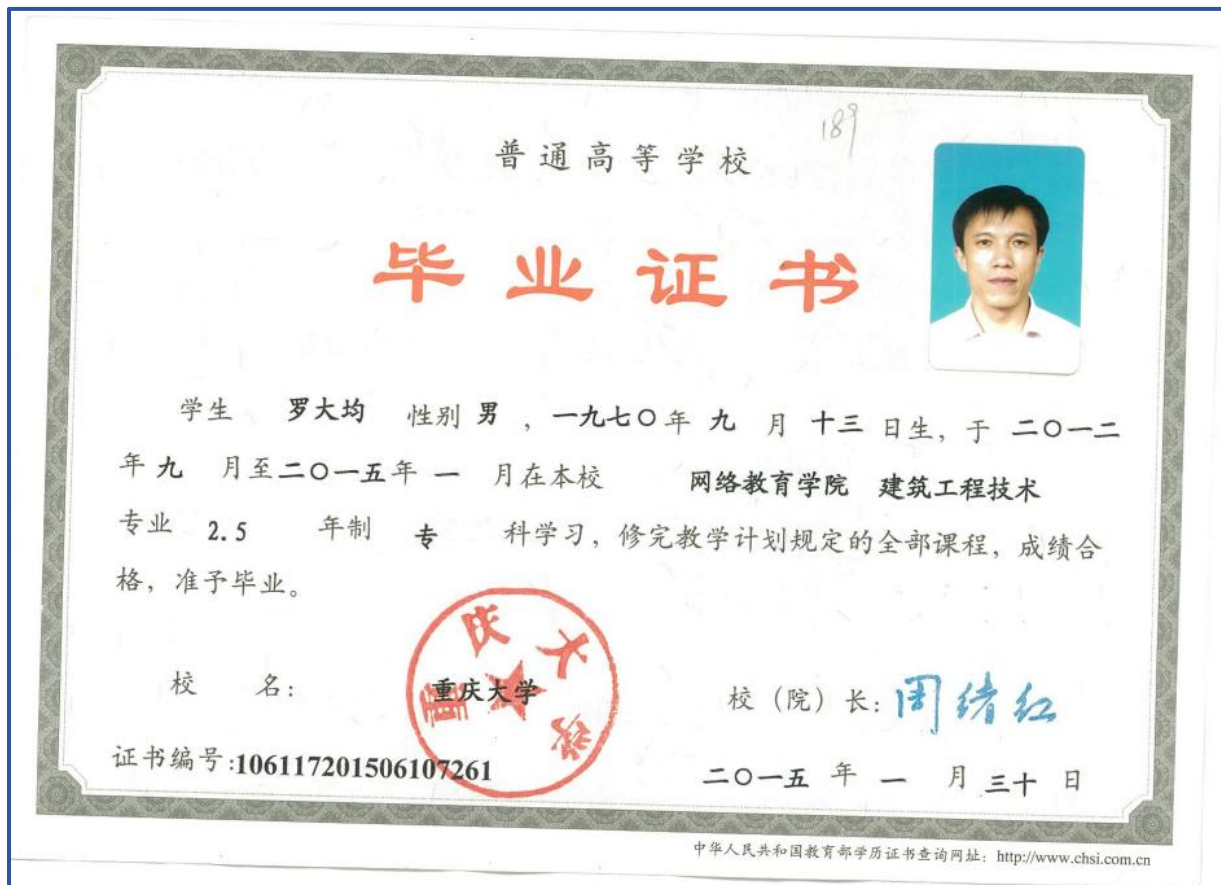 189
普通高等学校
毕业证书
学生 罗大均 性别 男 ，一九七〇年 九 月 十三 日生，于 二〇一二
年 九 月至二〇一五年 一 月在本校 网络教育学院 建筑工程技术
专业 2.5 年制 专 科学习，修完教学计划规定的全部课程，成绩合
格，准予毕业。
重庆大学
校 名： 重庆大学 校（院）长：周绪红
证书编号:106117201506107261 二〇一五 年 一 月 三十 日
中华人民共和国教育部学历证书查询网址：http://www.chsi.com.cn